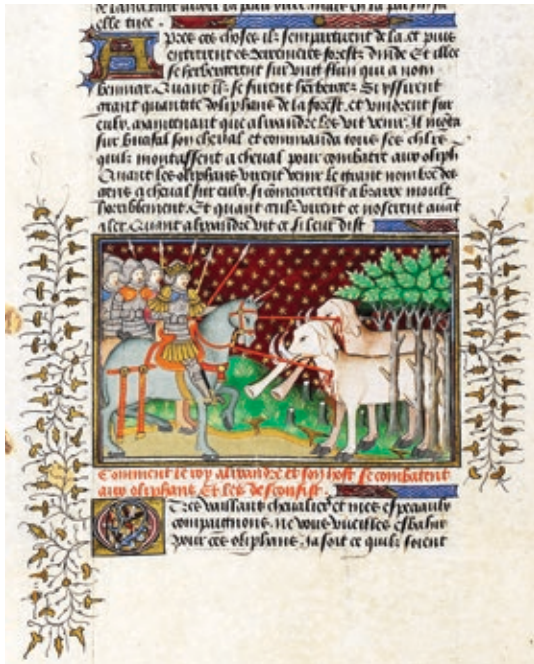 elle tuee.
Apres ces choses ilz sempartirent de la et puis
entrerent es derrenieres forestz dinde Et illec
se herbergerent sur vnet flun qui a nom
Quant ilz se furent herbergez Si yssirent
grant quantite dolifans de la forest. et vindrent sur
eulx. maintenant que alixandre les vit venir. Il mota
sur bucifal son cheval et commanda tous ses chlrs
quilz montassent a cheval pour combatre aux oliph
Quant les oliphans virent venir le grant nombre des
gens a cheval sur eulx. si commencerent a braire moult
horriblement. Et quant virent ce noserent auat
aler. Quant alixandre vit ce si leur dist
Comment le roy alixandre et son host se combatent
aux oliphans Et les desconfist.
O Tres vaillans cheualiers et mes especiaulx
compaignons. ne vous vueilles esbahir
pour ces oliphans. Ja soit ce quilz soient